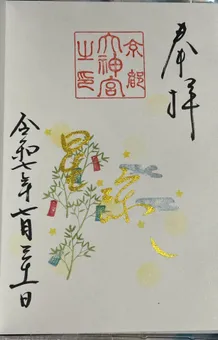 奉拝
京都
大神宮
之印
星詠
令和七年七月三十一日